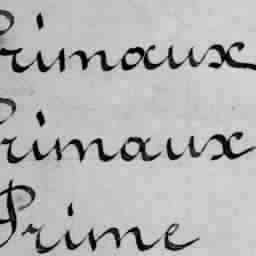 Primaux
Primaux
Prime